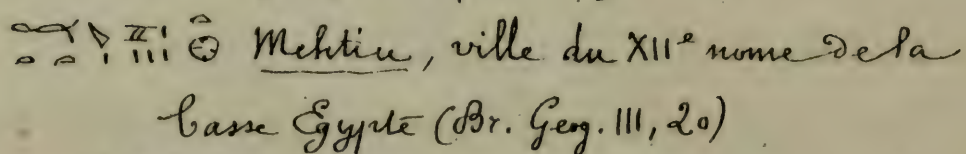 Mehtiu, ville du XIIe nome de la
basse Égypte (Br. Geog. III, 20)